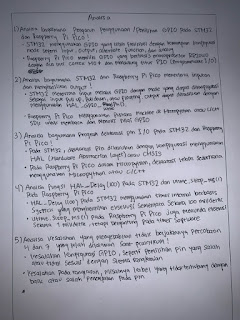 Analisa
1.) Analisa bagaimana Program penggunaan / Pemilihan GPIO pada STM32
dan Raspberry Pi Pico !
- STM32 menggunakan GPIO yang lebih fleksibel dengan beberapa konfigurasi
mode seperti input, output, alternate function, dan analog.
- Raspberry Pico memiliki GPIO yang berbasis mikrokontroler RP2040
dengan dua core ARM dan mendukung fitur PIO (Programmable I/O)
2.) Analisa bagaimana STM32 dan Raspberry Pi Pico menerima inputan
dan menghasilkan output !
- STM32 menerima input melalui GPIO dengan mode yang dapat dikonfigurasi
sebagai input pull up, pull down, atau floating, output dapat dihasilkan dengan
menggunakan HAL_GPIO
- Raspberry Pico menggunakan Pustaka di Micropython atau C/C++
SDK untuk membaca dan menulis data GPIO
3.) Analisa bagaimana Program deklarasi pin I/O pada STM32 dan Raspberry
Pi Pico !
- Pada STM32, deklarasi Pin dilakukan dengan konfigurasi menggunakan
HAL (Hardware Abstraction Layer) atau CMSIS
- Pada Raspberry Pi Pico dalam pemrograman, deklarasi lebih sederhana
menggunakan Micropython atau C/C++
4.) Analisa fungsi HAL_Delay(100) pada STM32 dan utime_sleep_ms(1)
pada Raspberry Pi Pico !
- HAL_Delay(100) pada STM32 menggunakan timer internal berbasis
System yang menghentikan eksekusi sementara selama 100 milidetik
- utime_sleep_ms(1) pada Raspberry Pi Pico juga menunda eksekusi
selama 1 milidetik, tetapi bergantung pada timer Software
5.) Analisa kesalahan yang mengakibatkan tidak berjalannya Percobaan
1 dan 7 yang telah dilakukan saat praktikum !
- kesalahan konfigurasi GPIO, seperti pemilihan pin yang salah
atau tidak sesuai dengan skema rangkaian
- Kesalahan pada rangkaian, misalnya kabel yang tidak terhubung dengan
baik atau salah penempatan pada pin